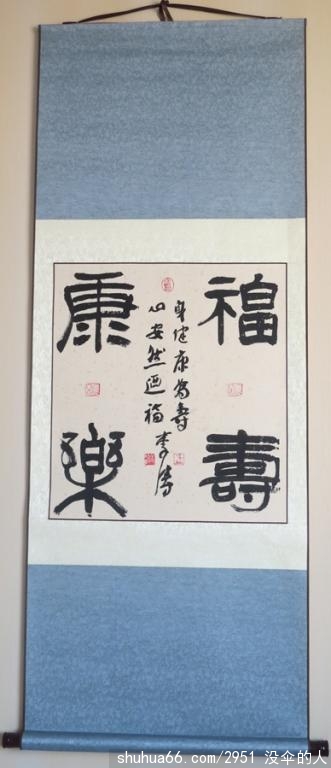 福壽
身健康為壽
心安然迺福
李
康樂
shuhua66.com/2951 没伞的人